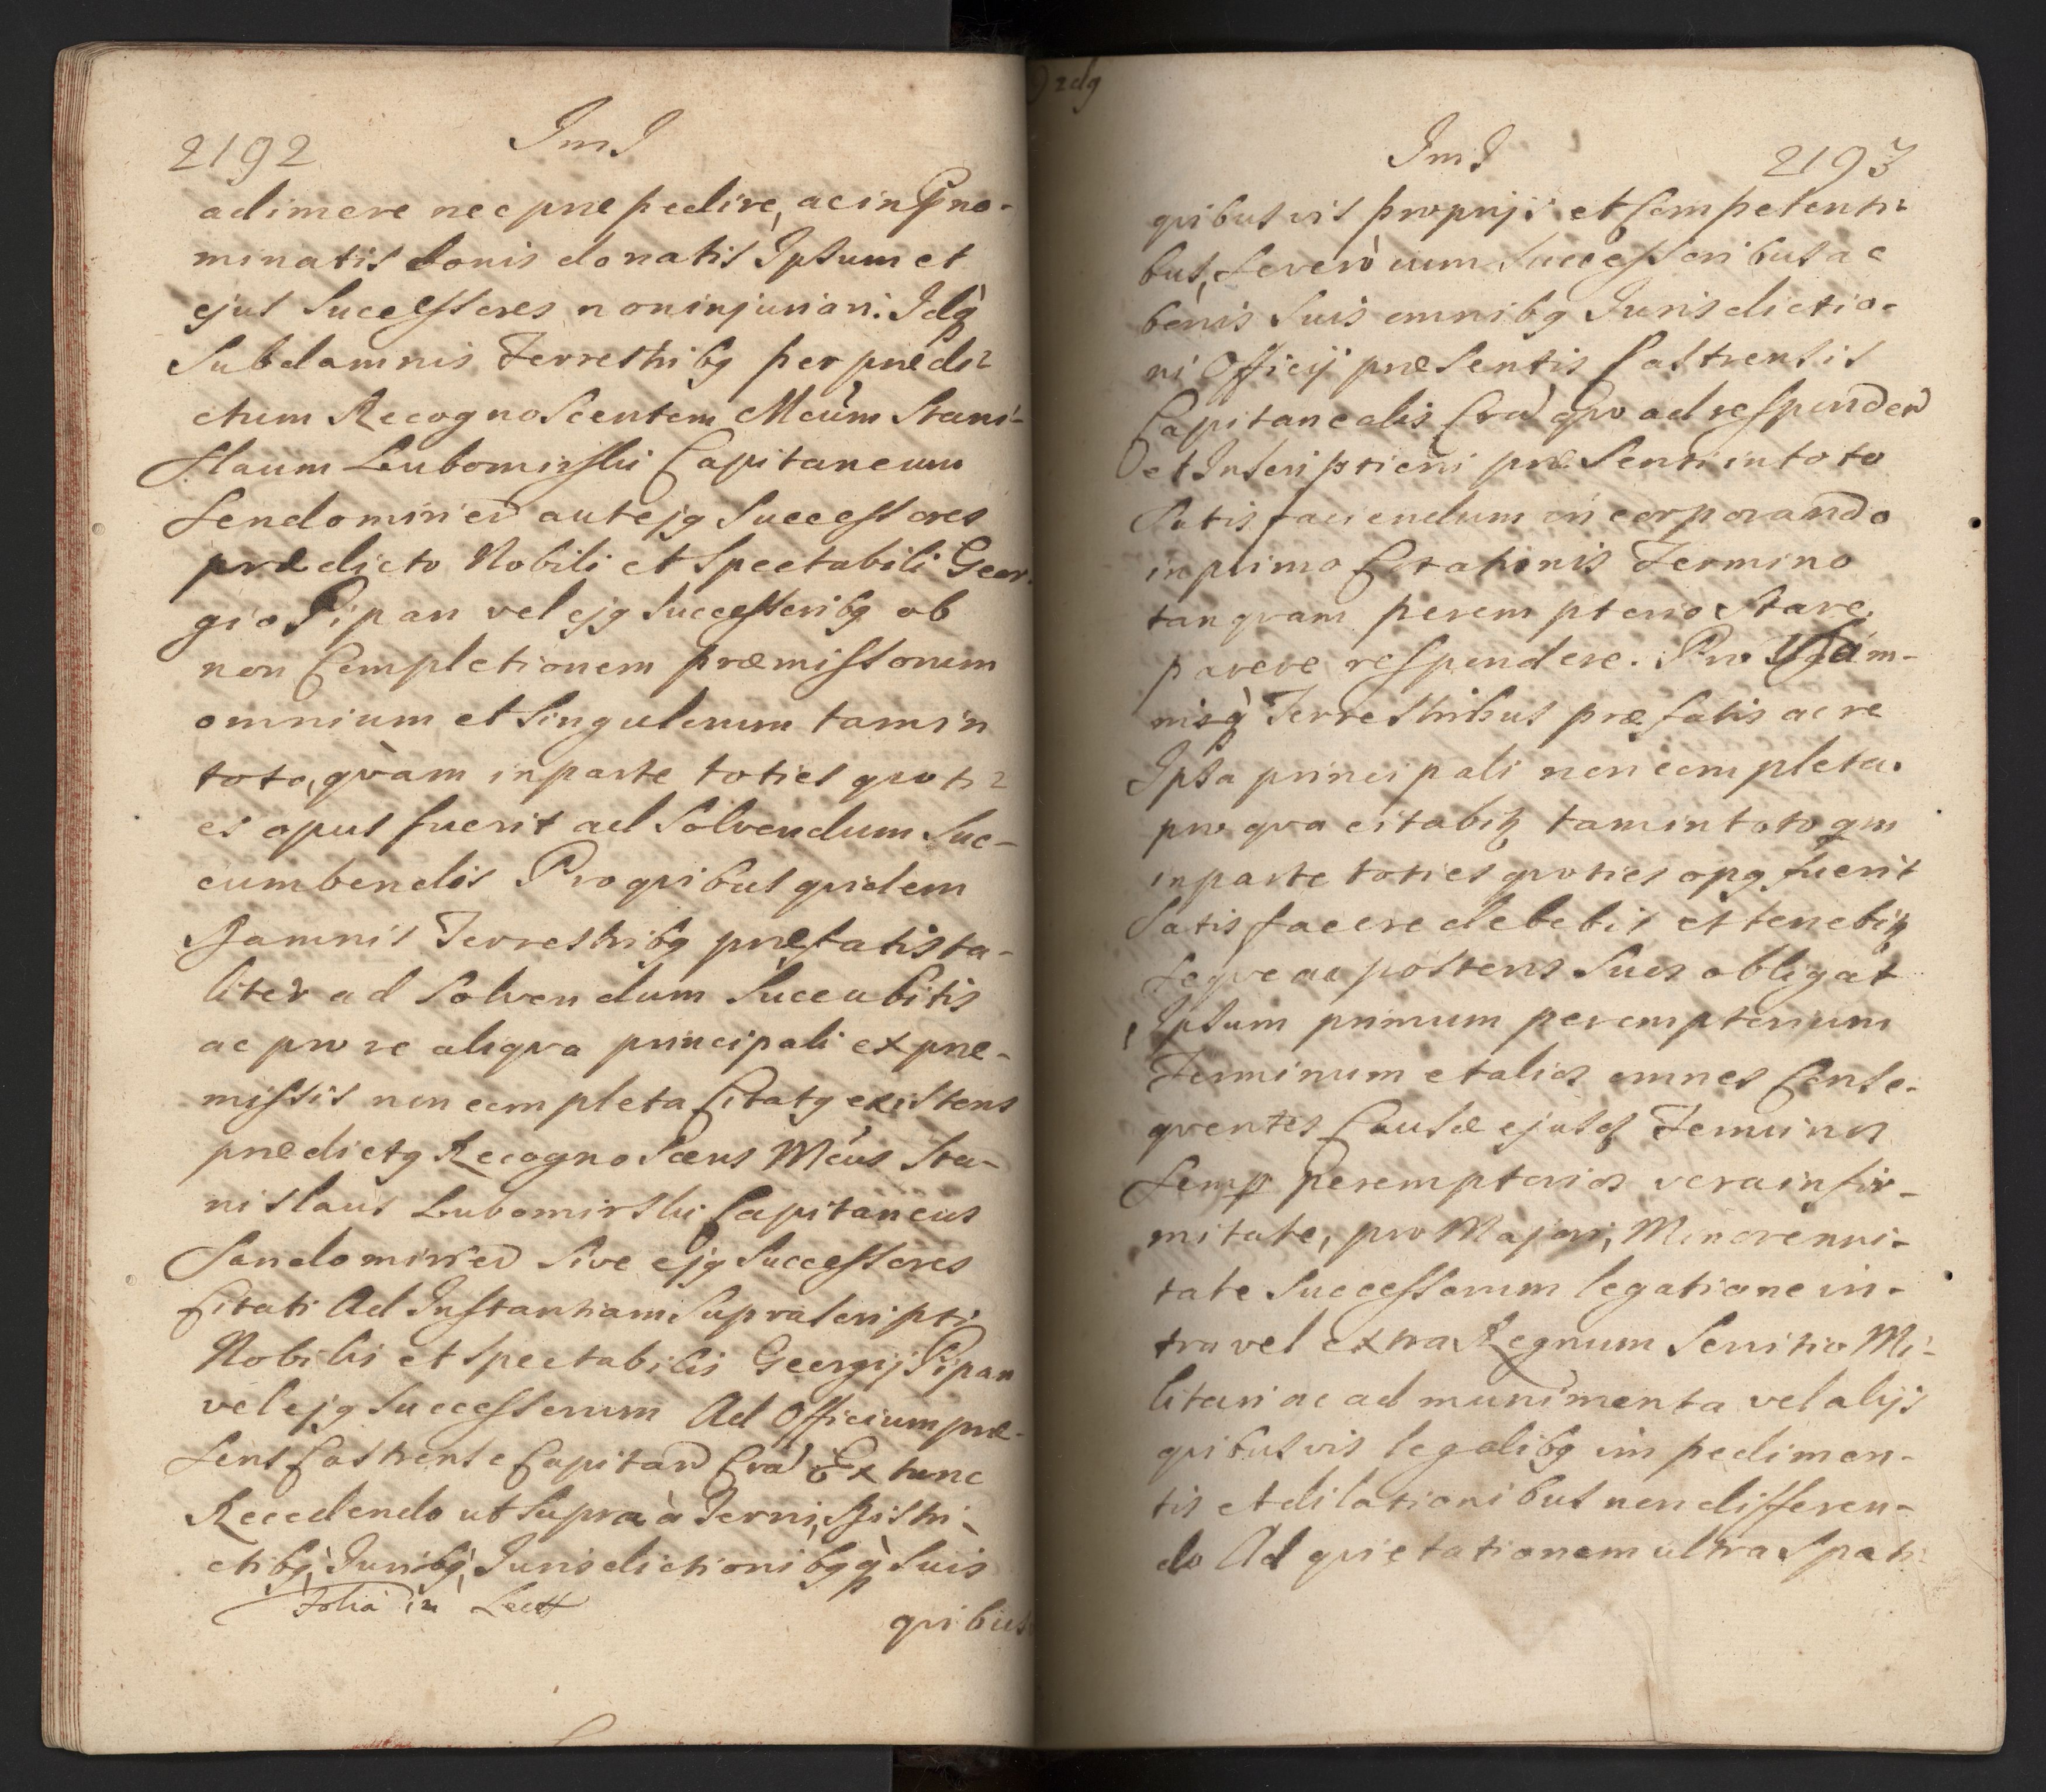 2192 JmJ
adimere nec præpedire, ac in Præno-
minatis bonis donatis Ipsum et
ejus Successores non injuriari. Idq
Sub damnis Terrestribg per prædi-
ctum Recognoscentem Mcum Stani-
slaum Lubomirski Capitaneum
Sendomirien aut ejg Successores
prædicto Nobili et Spectabili Geor-
gio Pipan vel ejg Successoribg ob
non Completionem præmissorum
omnium et Singulorum tam in
toto, qvam in parte toties qvoti-
es opus fuerit ad Solvendum Suc-
cumbendis Pro qvibus qvidem
Damnis Terrestribg præfatis ta-
liter ad Solvendum Succubitis
ac pro re aliqva principali ex præ-
missis non completa Citatg existens
prædictg Recognoscens Mcus Sta-
nislaus Lubomirski Capitaneus
Sandomirien Sive ejg Successores
Citati Ad Instantiam Suprascripti
Nobilis et Spectabilis Georgij Pipan
vel ejg Successorum Ad Officium præ-
sens Castrense Capitan Cra Extunc
Recedendo ut Supra à Terris, Distri-
ctibg, Juribg, Jurisdictionibgq Suis
Folia in Lectt
qvibus
JmJ 2193
qvibusvis proprijs et Competenti-
bus, Severo cum Successoribus ac
bonis Suis omnibg Jurisdictio-
ni Officij præsentis Castrensis
Capitanealis Cra qvo ad responden
et Inscriptioni præsenti in toto
Satisfaciendum incorporando
in primo Citationis Termino
tanqvam peremptorio Stare
parere respondere. Pro Dam-
nisq Terrestribus præfatis ac re
Ipsa principali non completa.
pro qva citabitr tam in toto qm
in parte toties qvoties opg fuerit
Satisfacere debebit et tenebitr
Seqve ac posteros Suos obligat
Ipsum primum peremptorium
Terminum et alios omnes Conse-
qventes Causæ ejusd Terminos
Semp Peremptorios vera infir-
mitate, pro Majori, Minorenni-
tate Successorum legatione in-
tra vel extra Regnum Servitio Mi-
litari ac ad munimenta vel alijs
qvibusvis legalibg impedimen-
tis et dilationibus non differen-
do Ad qvietationem ultra Spati-